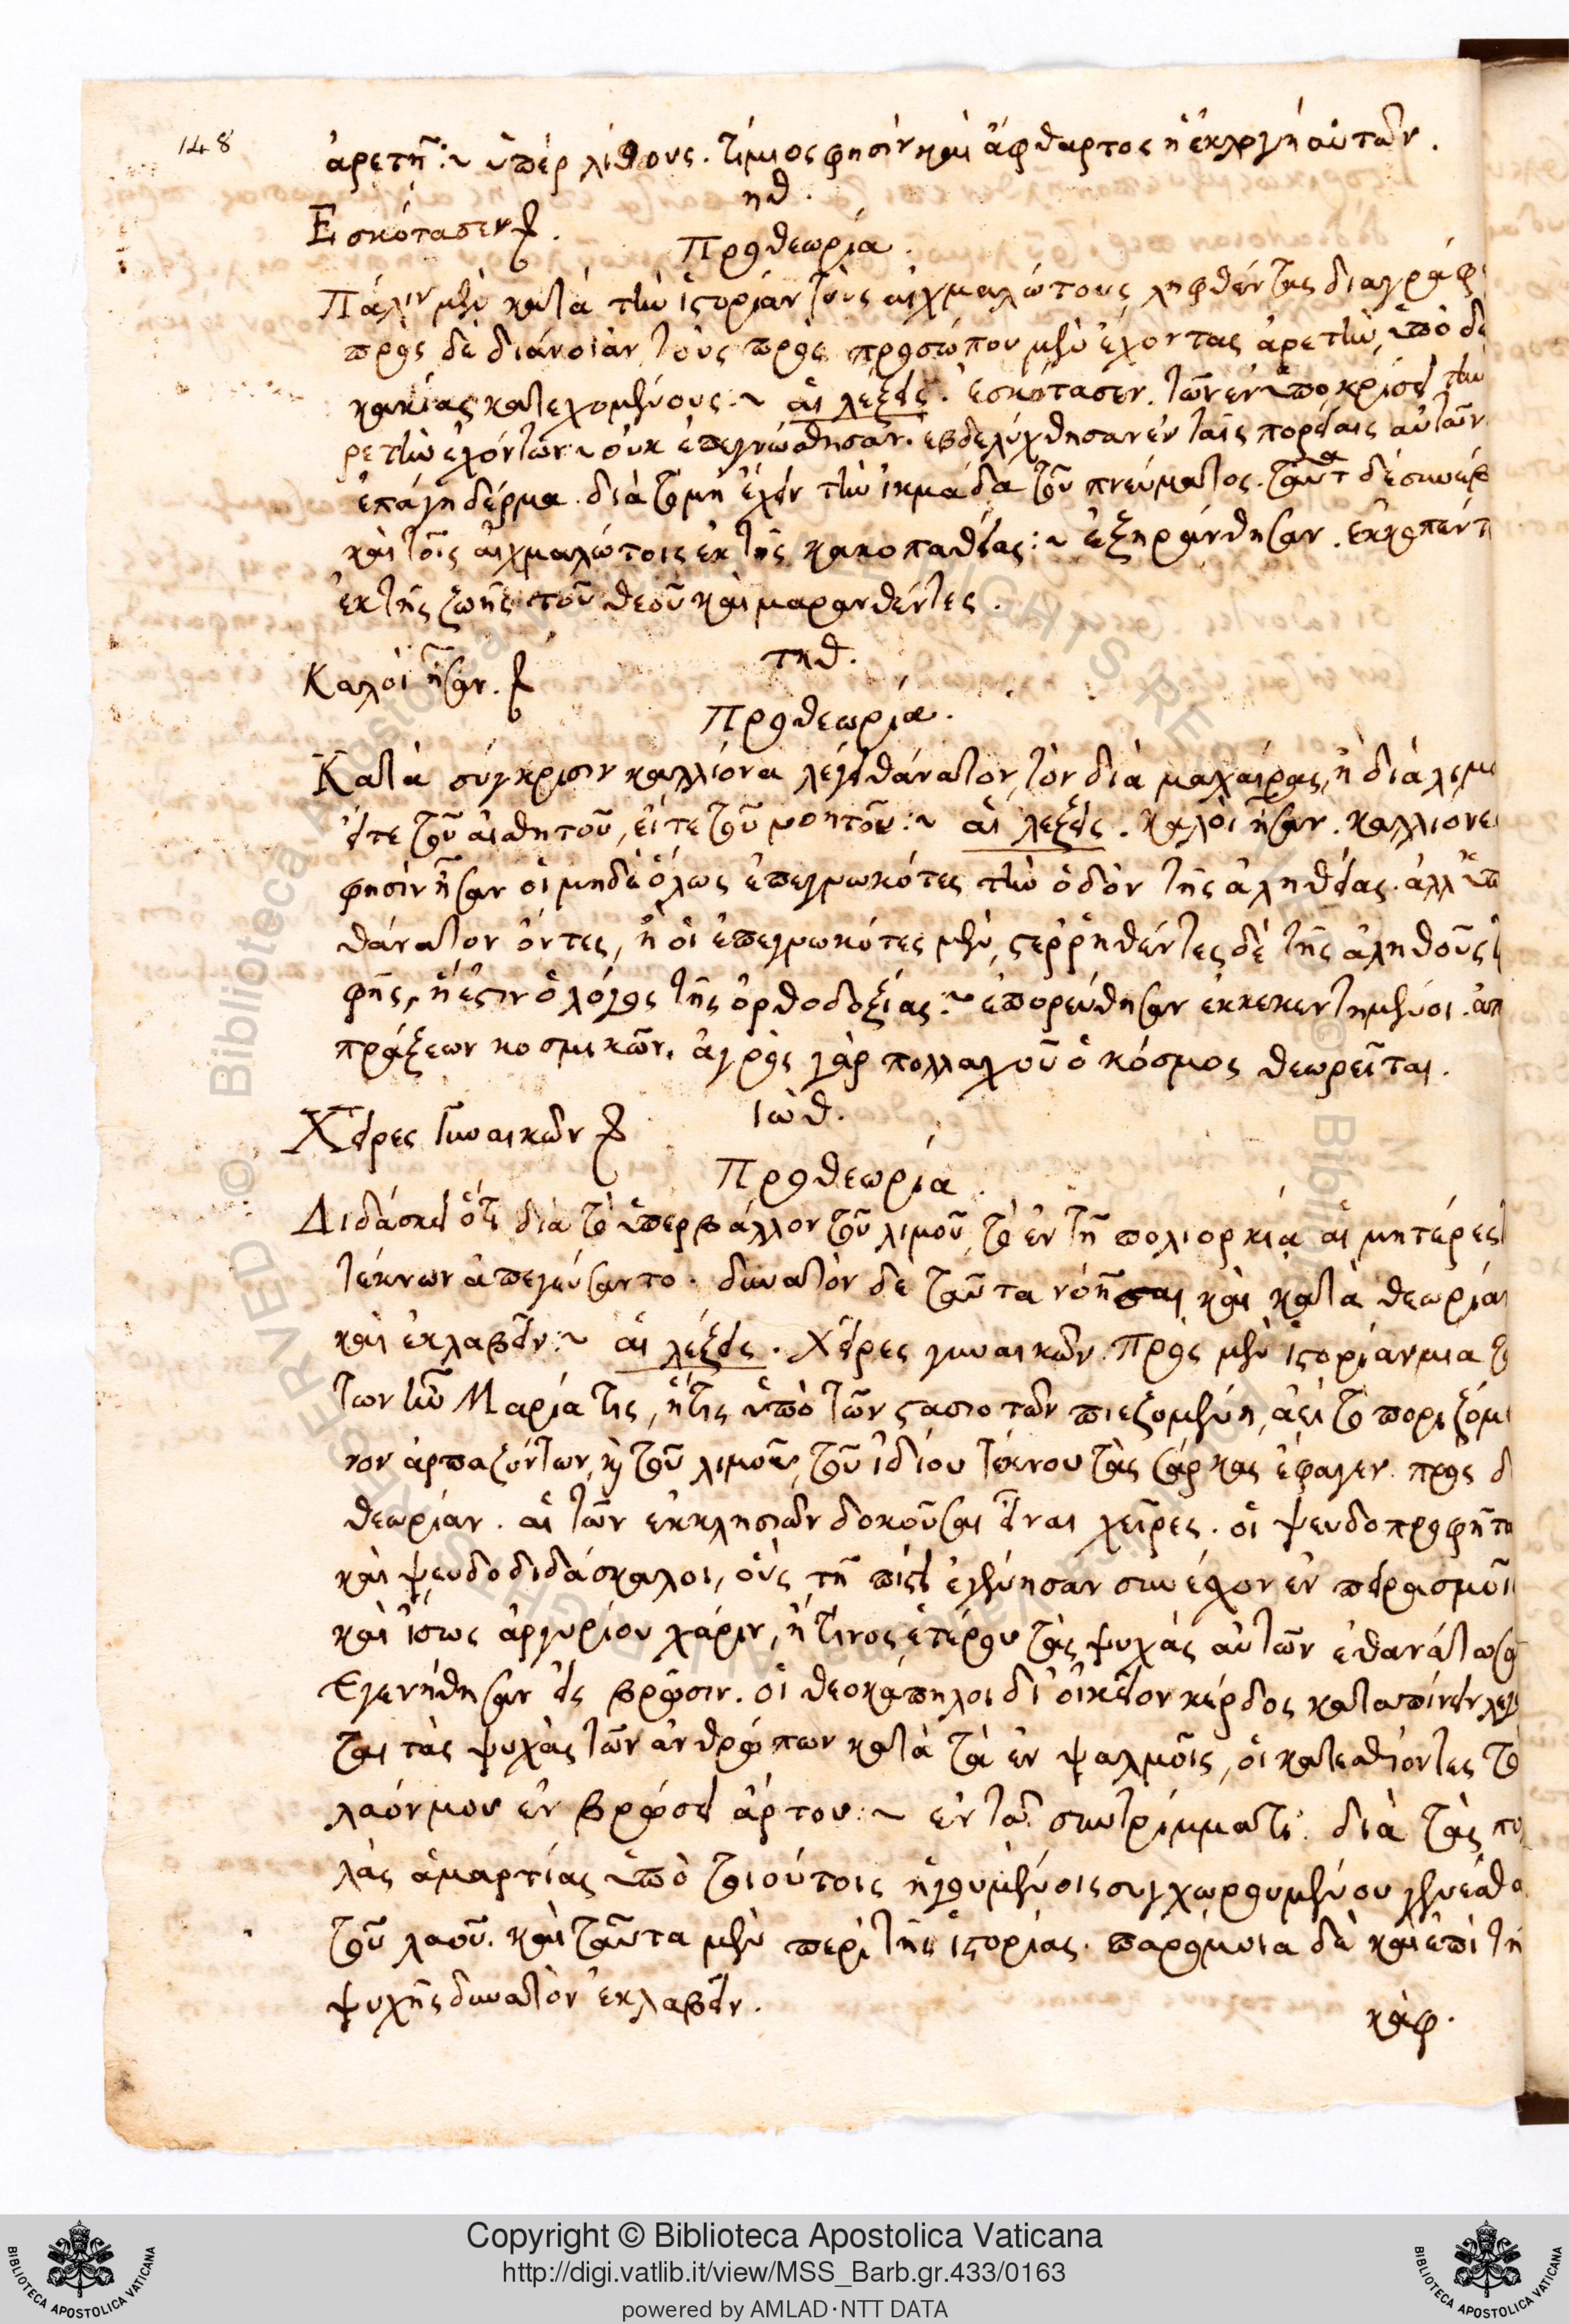 148
ἀρετῆ :~ ὑπὲρ λίθους. τίμιος φησὶν καὶ ἄφθαρτος ἡ ἐκλογὴ αὐτῶν.
ηθ.
Εσκότασεν
Προθεωρία.
Πάλιν μὲν κατὰ τὴν ἱστορίαν τοὺς αἰχμαλώτους ληφθέντας διαγράφ
πρὸς δὲ διάνοιαν τοὺς πρὸς προσώπου μὲν ἔχοντας ἀρετὴν, ὑπὸ δὲ
κακίας κατεχομένους :~ αἱ λέξεις. ἐσκότασεν. τῶν ἐν ὑποκρίσει τὴν
ρετὴν ἐχόντων ~ οὐκ ἐπεγνώσθησαν. ἐβδελύχθησαν ἐν ταῖς πορείαις αὐτῶν
ἐπάγη δέρμα. διὰ τὸ μὴ ἔχειν τὴν ἰκμάδα τοῦ πνεύματος. ταῦτα δὲ συνέβ
καὶ τοῖς αἰχμαλώτοις ἐκ τῆς κακοπαθείας :~ ἐξηράνθησαν. ἐκκοπέντ
ἐκ τῆς ζωῆς τοῦ θεοῦ καὶ μαρανθέντες.
τηθ.
Καλοὶ ἦσαν.
Προθεωρία.
Κατὰ σύγκρισιν καλλίονα λέγει θάνατον, τὸν διὰ μαχαίρας, ἢ διὰ λιμ
εἴτε τοῦ αἰσθητοῦ, εἴτε τοῦ νοητοῦ :~ αἱ λέξεις. καλοὶ ἦσαν. καλλίονε
φησὶν ἦσαν οἱ μηδὲ ὅλως ἐπεγνωκότες τὴν ὁδὸν τῆς ἀληθείας. ἀλλ' ὑπ
θάνατον ὄντες, ἢ οἱ ἐπεγνωκότες μὲν, στερρηθέντες δὲ τῆς ἀληθοῦς τ
φῆς, ἥ ἐστιν ὁ λόγος τῆς ὀρθοδοξίας :~ ἐπορεύθησαν ἐκκεκεντημένοι. ἀπ
πράξεων κοσμικῶν. ἀγρὸς γὰρ πολλαχοῦ ὁ κόσμος θεωρεῖται.
ἰὼθ.
Χεῖρες γυναικῶν
Προθεωρία.
Διδάσκει ὅτι διὰ τὸ ὑπερβάλλον τοῦ λιμοῦ, τὸ ἐν τῇ πολιορκία αἱ μητέρες τ
τέκνων ἀπεγεύσαντο. δυνατὸν δὲ ταῦτα νόησαι καὶ κατὰ θεωρίαν
καὶ ἐκλαβεῖν :~ αἱ λέξεις. Χεῖρες γυναικῶν. Πρὸς μὲν ἱστορίαν μια τ
των ἦν Μαρία τις, ἥτις ὑπὸ τῶν στασιοτῶν πιεζομένη, ἀεὶ τὸ ποριζόμ
νον ἁρπαζόντων, καὶ τοῦ λιμοῦ, τοῦ ἰδίου τέκνου τὰς σάρκας ἔφαγεν. πρὸς δ
θεωρίαν. αἱ τῶν ἐκκλησιῶν δοκοῦσαι εἶναι χεῖρες. οἱ ψευδοπροφῆτα
καὶ ψευδοδιδάσκαλοι, οὓς τῇ πίστει ἐγέννησαν συνέχον ἐν πειρασμοῖ
καὶ ἴσως ἀργυρίου χάριν, ἤ τινος ἑτέρου τὰς ψυχὰς αὐτῶν ἐθανάτωσα
Εγενήθησαν εἰς βρῶσιν. οἱ θεοκάπηλοι δι' οἰκεῖον κέρδος καταπίνειν λέγο
ται τὰς ψυχὰς τῶν ἀνθρώπων κατὰ τὰ ἐν ψαλμοῖς, οἱ κατεσθίοντες τὸ
λαόν μου ἐν βρώσει ἄρτου :~ ἐν τῶ συντρίμματι. διὰ τὰς πο
λὰς ἁμαρτίας ὑπὸ τοιούτοις ἡγουμένοις συγχωρουμένου γενέσθα
τοῦ λαοῦ. καὶ ταῦτα μὲν περὶ τῆς ἱστορίας. παρόμοια δὲ καὶ ἐπὶ τῆ
ψυχῆς δυνατὸν ἐκλαβεῖν.
κάφ.
Copyright © Biblioteca Apostolica Vaticana
http://digi.vatlib.it/view/MSS_Barb.gr.433/0163
powered by AMLAD·NTT DATA
BIBLIOTECA APOSTOLICA VATICANA
BIBLIOTECA APOSTOLICA VATICANA